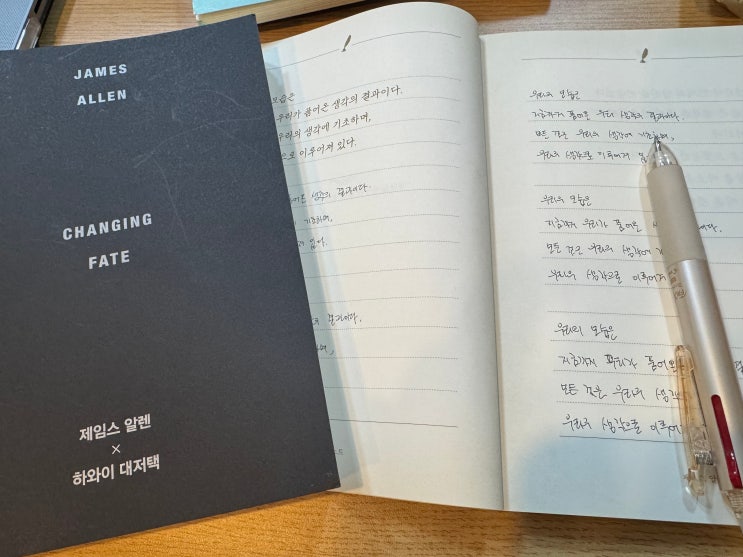 JAMES
ALLEN
CHANGING
FATE
제임스 알렌
×
하와이 대저택
모습은
우리가 품어온 생각의 결과이다.
우리의 생각에 기초하며,
으로 이루어져 있다.
생각의 결과이다.
기초하며,
있다.
결과이다.
우리의 모습은
지금까지 품어온 우리 생각의 결과이다.
모든 것은 우리의 생각에 기초하며,
우리의 생각으로 이루어져
우리의 모습은
지금까지 우리가 품어온
모든 것은 우리의 생각에
우리의 생각으로 이루어져
우리의 모습은
지금까지 우리가 품어온
모든 것은 우리의 생각
우리의 생각으로 이루어